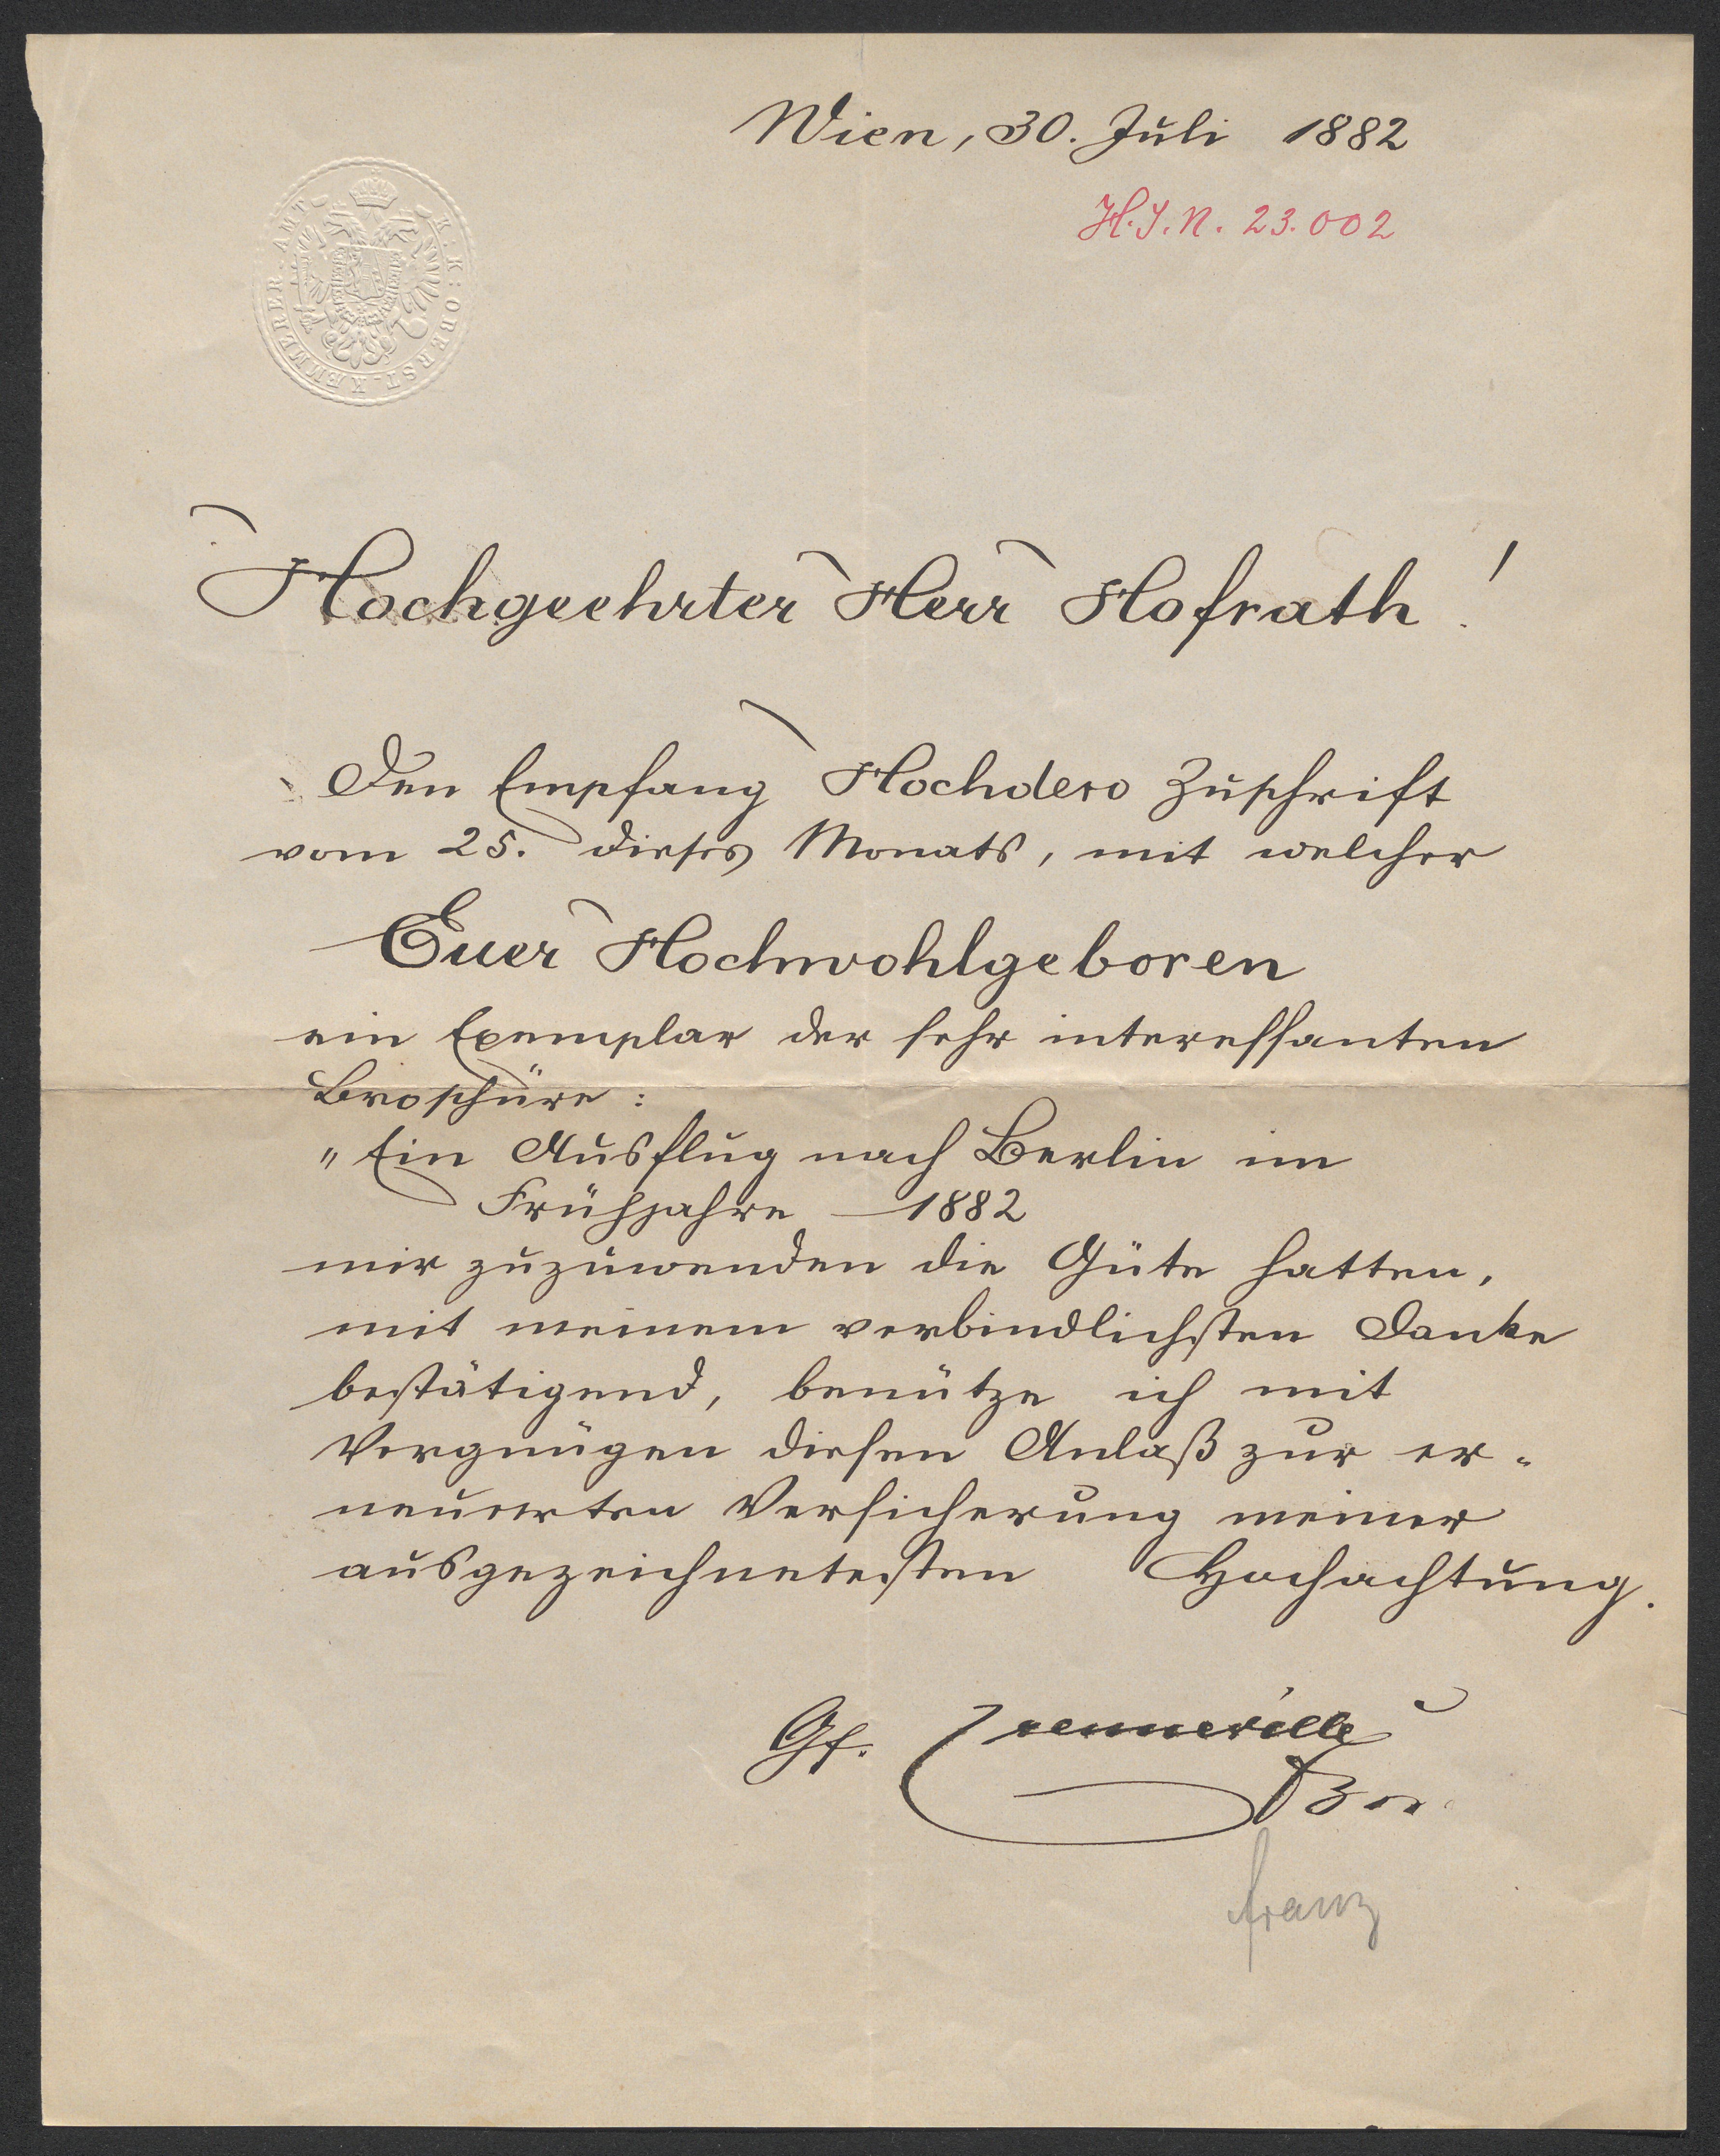 Wien, 30. Juli 1882
H.I.N. 23.002
K.K: OBERST-KÆMMERER-AMT
Hochgeehrter Herr Hofrath!
Den Empfang Hochdero Zuschrift
vom 25. dieses Monats, mit welcher
Euer Hochwohlgeboren
ein Exemplar der sehr interessanten
Broschüre:
„Ein Ausflug nach Berlin im
Frühjahre 1882
mir zuzuwenden die Güte hatten,
mit meinem verbindlichsten Danke
bestätigend, benütze ich mit
Vergnügen diesen Anlaß zur er-
neuerten Versicherung meiner
ausgezeichnetesten Hochachtung.
Gf. Crenneville
franz